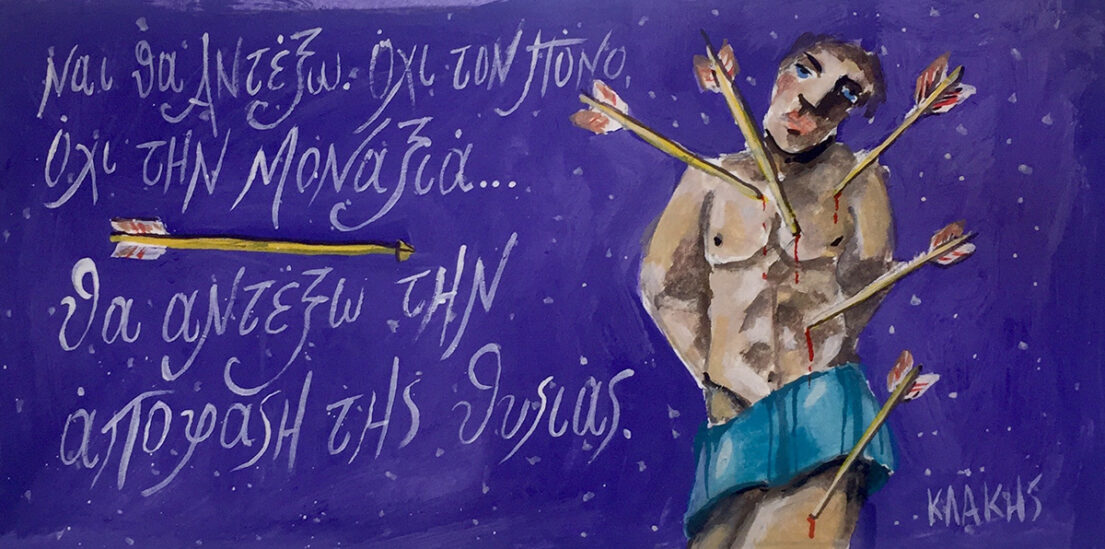 Ναι θα Αντέξω. Όχι τον πόνο.
Όχι την Μοναξιά...
θα αντέξω την
απόφαση της θυσίας.
ΚΛΑΚΗΣ